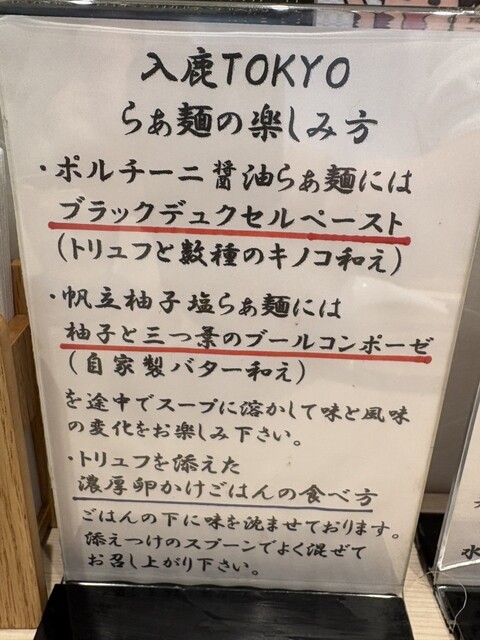 入鹿TOKYO
らぁ麺の楽しみ方
・ポルチーニ醤油らぁ麺には
ブラックデュクセルペースト
(トリュフと数種のキノコ和え)
・帆立柚子塩らぁ麺には
柚子と三つ葉のブールコンポーゼ
(自家製バター和え)
を途中でスープに溶かして味と風味
の変化をお楽しみ下さい。
・トリュフを添えた
濃厚卵かけごはんの食べ方
ごはんの下に味を沈ませております。
添えつけのスプーンでよく混ぜて
お召し上がり下さい。
水